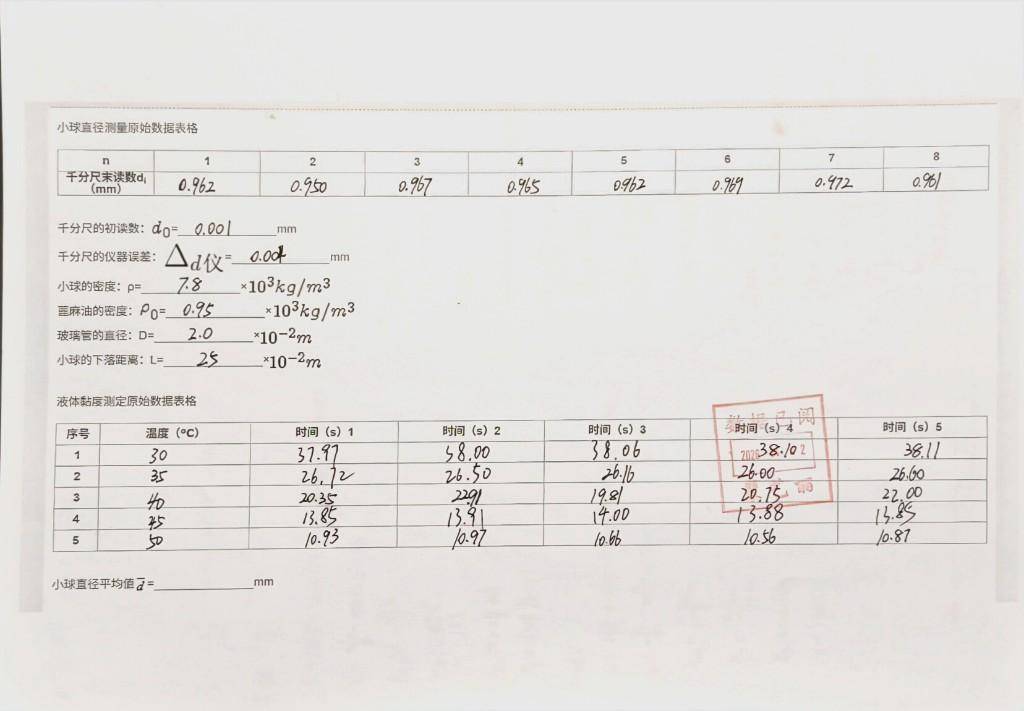 小球直径测量原始数据表格
n 1 2 3 4 5 6 7 8
千分尺末读数di（mm） 0.962 0.950 0.967 0.965 0.962 0.969 0.972 0.961
千分尺的初读数：d0=0.001mm
千分尺的仪器误差：Δd仪=0.004mm
小球的密度：ρ=7.8×10³kg/m³
蓖麻油的密度：ρ0=0.95×10³kg/m³
玻璃管的直径：D=2.0×10⁻²m
小球的下落距离：L=25×10⁻²m
液体黏度测定原始数据表格
序号 温度（°C） 时间（s）1 时间（s）2 时间（s）3 时间（s）4 时间（s）5
1 30 37.97 38.00 38.06 38.10 38.11
2 35 26.72 26.50 26.16 26.00 26.60
3 40 20.35 22.91 19.81 20.75 22.00
4 45 13.85 13.91 14.00 13.88 13.85
5 50 10.93 10.97 10.66 10.56 10.87
小球直径平均值d̄=mm